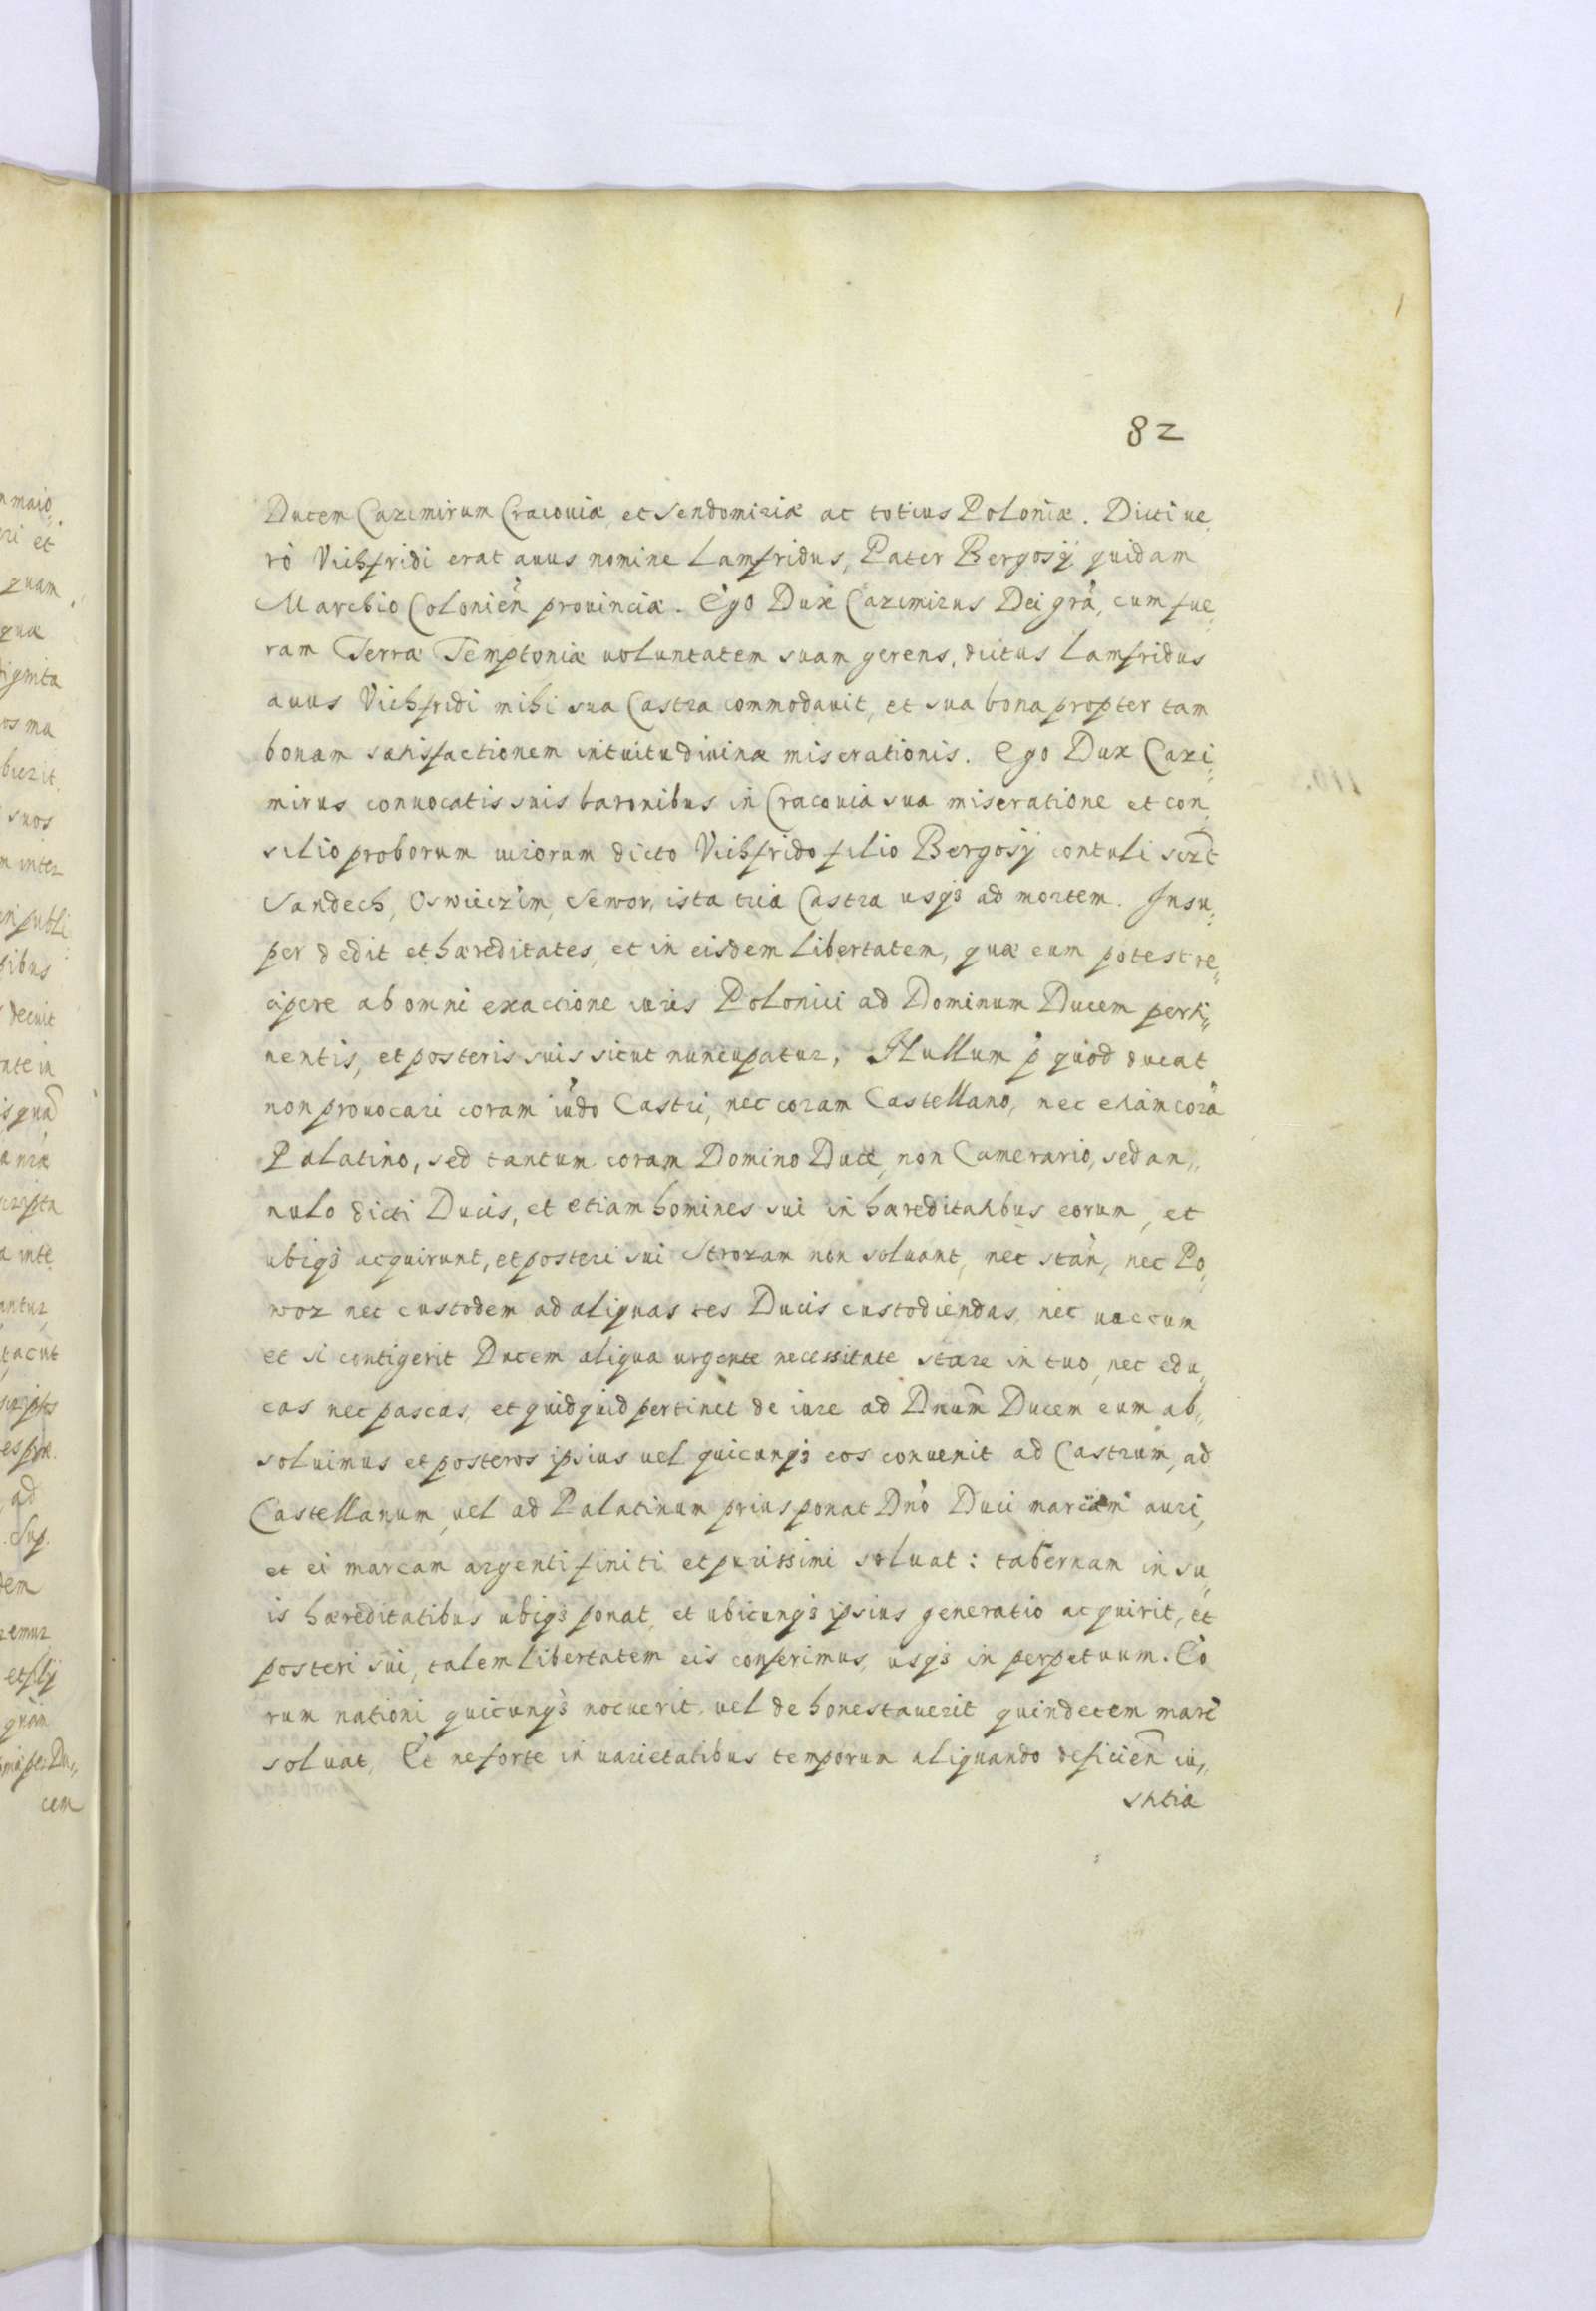 82
Ducem Cazimirum Cracouiæ et Sendomiriæ ac totius Poloniæ. Dicti ue,
rò Vichfridi erat auus nomine Lamfridus, Pater Bergosÿ quidam
Marchio Colonień prouinciæ. Ego Dux Cazimirus Dei grã, cum fue,
ram Terræ Temptoniæ uoluntatem suam gerens, dictus Lamfridus
auus Vichfridi mihi sua Castra commodauit, et sua bona propter tam
bonam satisfactionem intuitu diuinæ miserationis. Ego Dux Cazi,
mirus conuocatis suis baronibus in Cracouia sua miseratione et con,
silio proborum uirorum dicto Vichfrido filio Bergosÿ contuli scił̃t
Sandech, Oswieczim, Sewor, ista tria Castra usq3 ad mortem. Insu,
per dedit et hæreditates, et in eisdem libertatem, quæ eum potest re,,
cipere ab omni exactione iuris Polonici ad Dominum Ducem perti,,
nentis, et posteris suis sicut nuncupatur, Nullum p quod ducat
non prouocari coram iudõ Castri, nec coram Castellano, nec etiam corã
Palatino, sed tantum coram Domino Duce, non Camerario, sed an,,
nulo dicti Ducis, et etiam homines sui in hæreditatibus eorum, et
ubiq3 acquirunt, et posteri sui Strozam non soluant, nec stań, nec Po,
woz nec custodem ad aliquas res Ducis custodiendas, nec uaccum
et si contigerit Ducem aliqua urgente necessitate stare in tuo, nec edu,
cas nec pascas, et quidquid pertinet de iure ad Dnum̃ Ducem eum ab,,
soluimus et posteros ipsius uel quicunq3 eos conuenit ad Castrum, ad
Castellanum, uel ad Palatinum prius ponat Dnõ Duci marcam auri,
et ei marcam argenti finiti et purissimi soluat: tabernam in su,
is hæreditatibus ubiq3 ponat, et ubicunq3 ipsius generatio acquirit, et
posteri sui, talem libertatem eis conferimus, usq3 in perpetuum. Eo
rum nationi quicunq3 nocuerit uel dehonestauerit quindecem marc̃
soluat, Et ne forte in uarietatibus temporum aliquando deficień iu,,
stitia